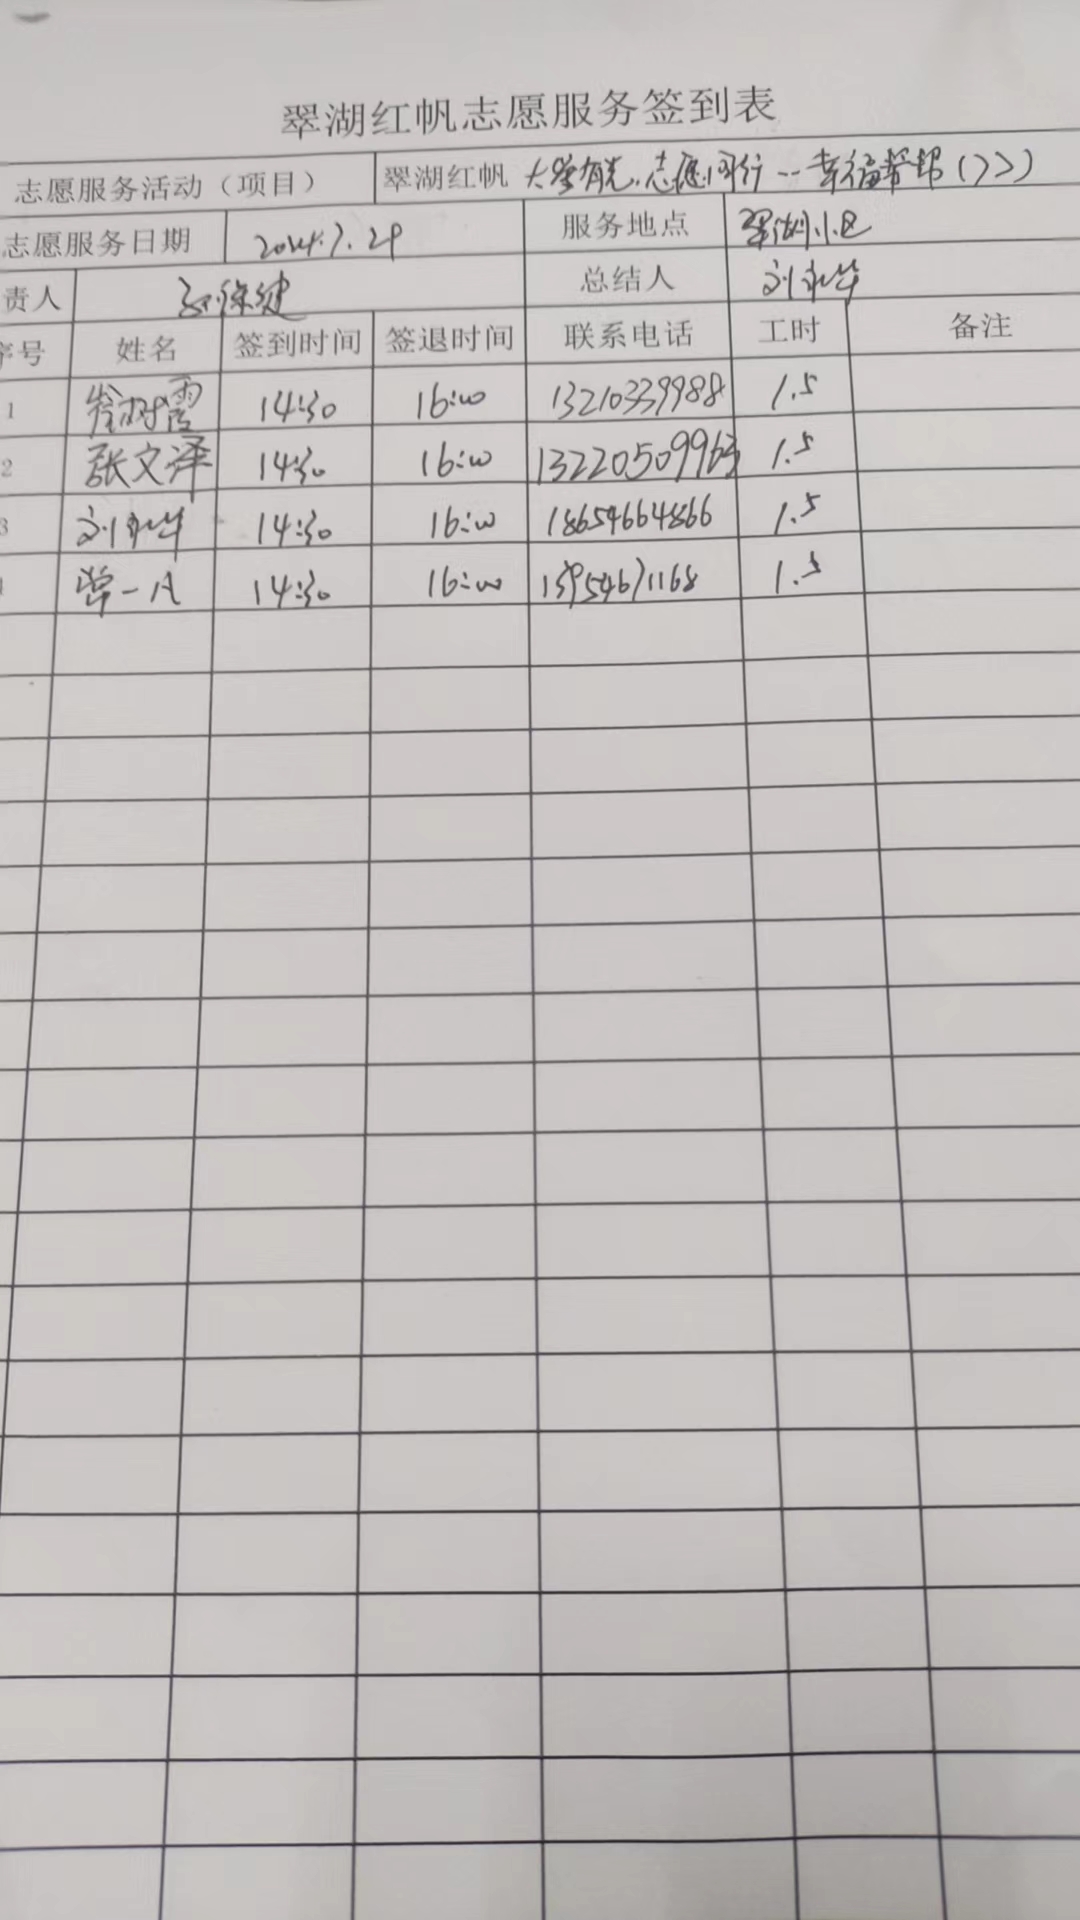 翠湖红帆志愿服务签到表
志愿服务活动（项目） 翠湖红帆 大爱有光，志愿同行--幸福帮帮(22)
志愿服务日期 2024.7.29 服务地点 翠湖小区
责人 总结人 刘永华
序号 姓名 签到时间 签退时间 联系电话 工时 备注
1 14:30 16:00 13210339988 1.5
2 张文泽 14:30 16:00 13220509963 1.5
3 刘永华 14:30 16:00 18654664866 1.5
常一凡 14:30 16:00 13954671168 1.5